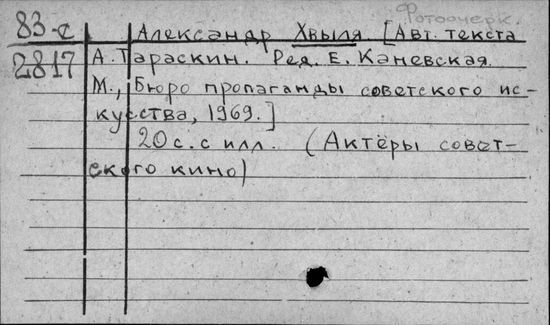 Фотоочерк.
83-с Александр Хвыля. [Авт. текста
2817 А. Тараскин. Ред. Е. Каневская.
М., Бюро пропаганды советского ис-
кусства, 1969.]
20 с. с илл. (Актёры совет-
ского кино)